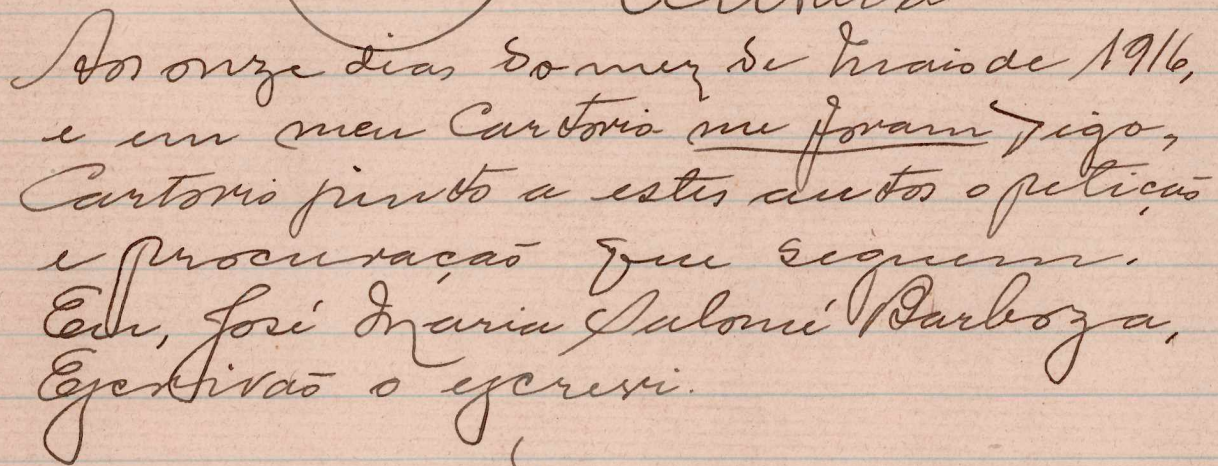 Aos onze dias do mez de Maio de 1916,
e em meu Cartorio me foram digo,
Cartorio junto a estes autos a petição
e procuração que seguem.
Eu, José Maria Salomé Barboza,
Escrivão o escrevi.